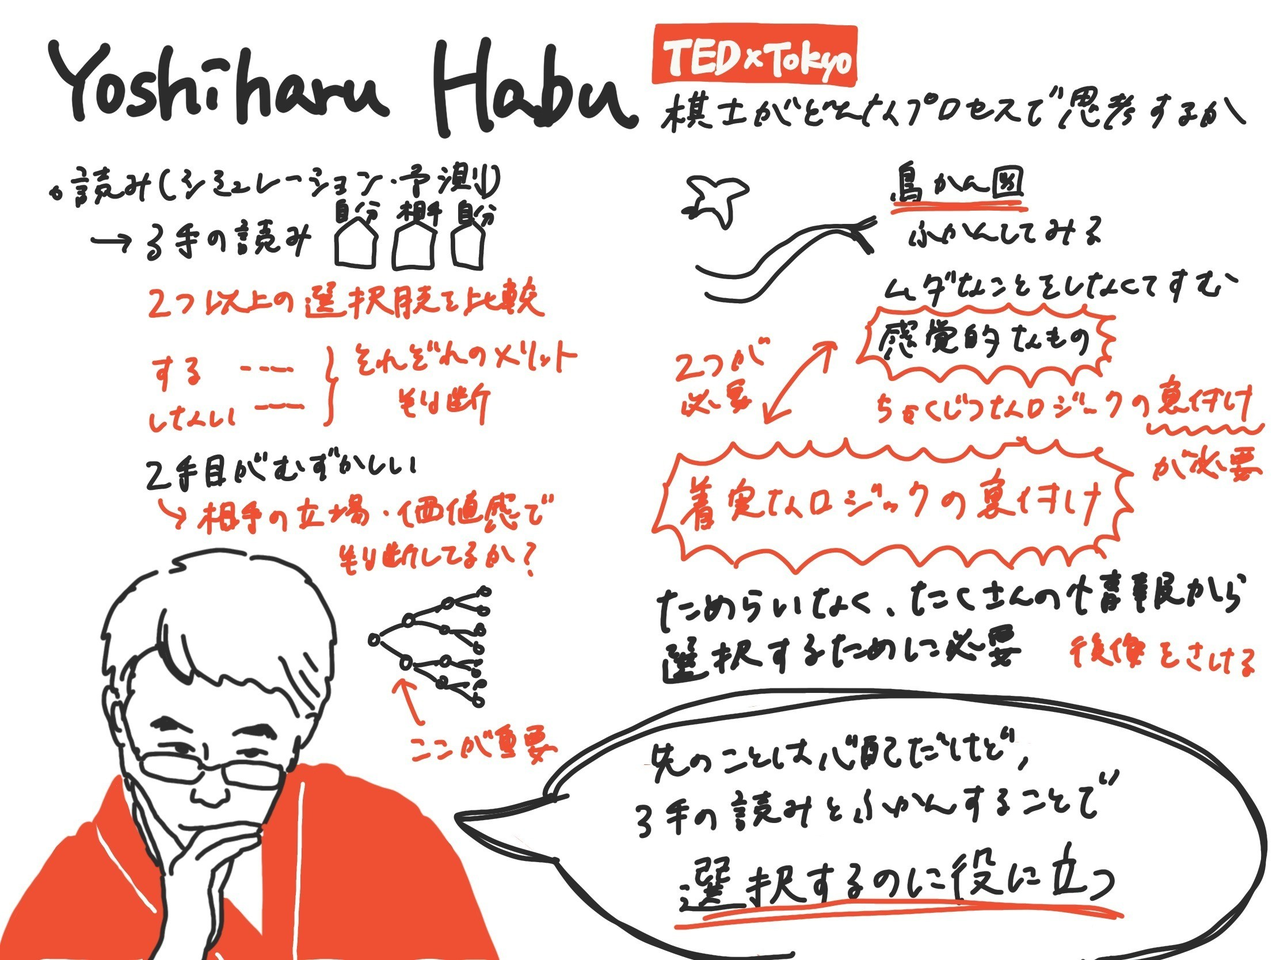 Yoshiharu Habu
TEDxTokyo
棋士がどんなプロセスで思考するか
。読み(シミュレーション・予測)
→3手の読み
自分 相手 自分
2つ以上の選択肢を比較
する ----
しない ---
それぞれのメリット
判断
2手目がむずかしい
↳相手の立場・価値感で
判断してるか?
ここが重要
鳥かん図
ふかんしてみる
ムダなことをしなくてすむ
感覚的なもの
2つが
必要
ちゃくじつなロジックの裏付け
が必要
着実なロジックの裏付け
ためらいなく、たくさんの情報から
選択するために必要
後悔をさける
先のことは心配だけど,
3手の読みとふかんすることで
選択するのに役に立つ